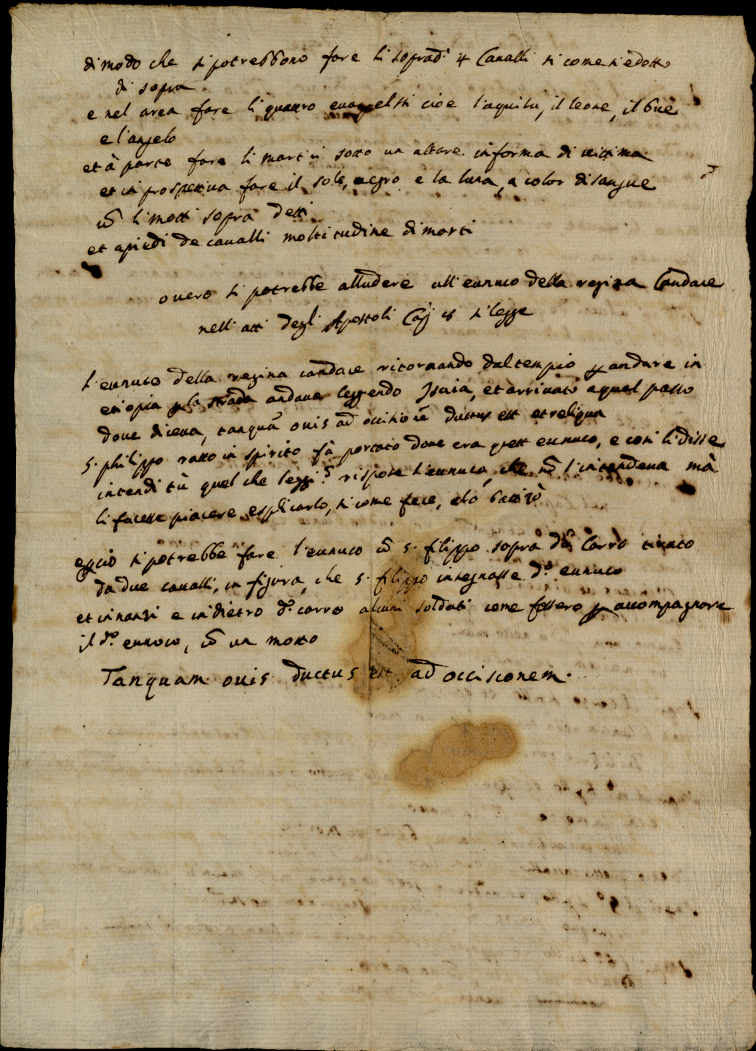 di modo che si potrebbono fare li soprad.ⁱ 4 Cavalli si come si è dotto
di sopra
e nel area fare li quattro evangelisti cioè l'aquila, il leone, il bue
e l'angelo
et à parte fare li martiri sotto un altare in forma di vittima
et in prospettiva fare il sole, negro e la luna, a color di sangue
cō li motti sopra detti
et a piedi de cavalli moltitudine di morti
overo si potrebbe alludere all'eunuco della regina Candace
nell'atti degli Apostoli Cap 8 si legge
L'eunuco della regina candace ritornando dal tempio p andare in
etiopia p la strada andava leggendo Isaia, et arrivato a quel passo
dove diceva, tanquā ovis ad occisionē ductus est et reliqua
S. philippo ratto in spirito fù portato dove era quest eunuco, e così li disse
intendi tù quel che leggi? rispose l'eunuco, che nō l'intendeva mà
li facesse piacere esplicarlo, si come fece, e lo battizò
e pciò si potrebbe fare l'eunuco cō S. filippo sopra dū Carro tirato
da due cavalli, in figura, che S. filippo insegnasse d.º eunuco
et inanzi e indietro d.º carro alcuni soldati come fossero p accompagnare
il d.º eunuco, cō un motto
Tanquam ovis ductus est ad occisionem.